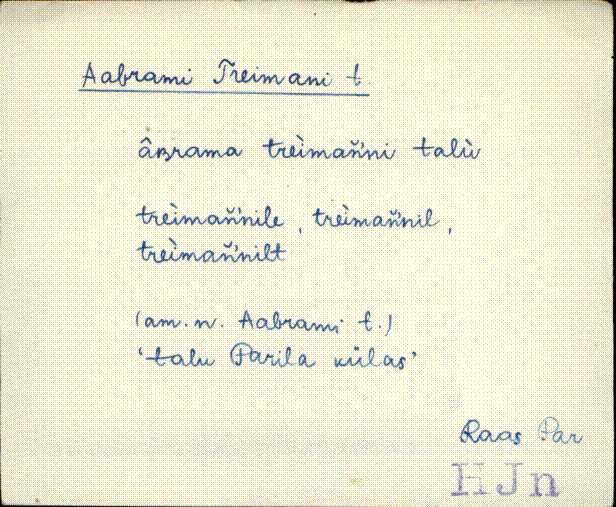 Aabrami Treimani t.
âʙrama treìmaň'ni talù
treìmaň'nile, treìmaň'nil,
treìmaň'nilt
(am. n. Aabrami t.)
'talu Parila külas'
Raas Par
HJn